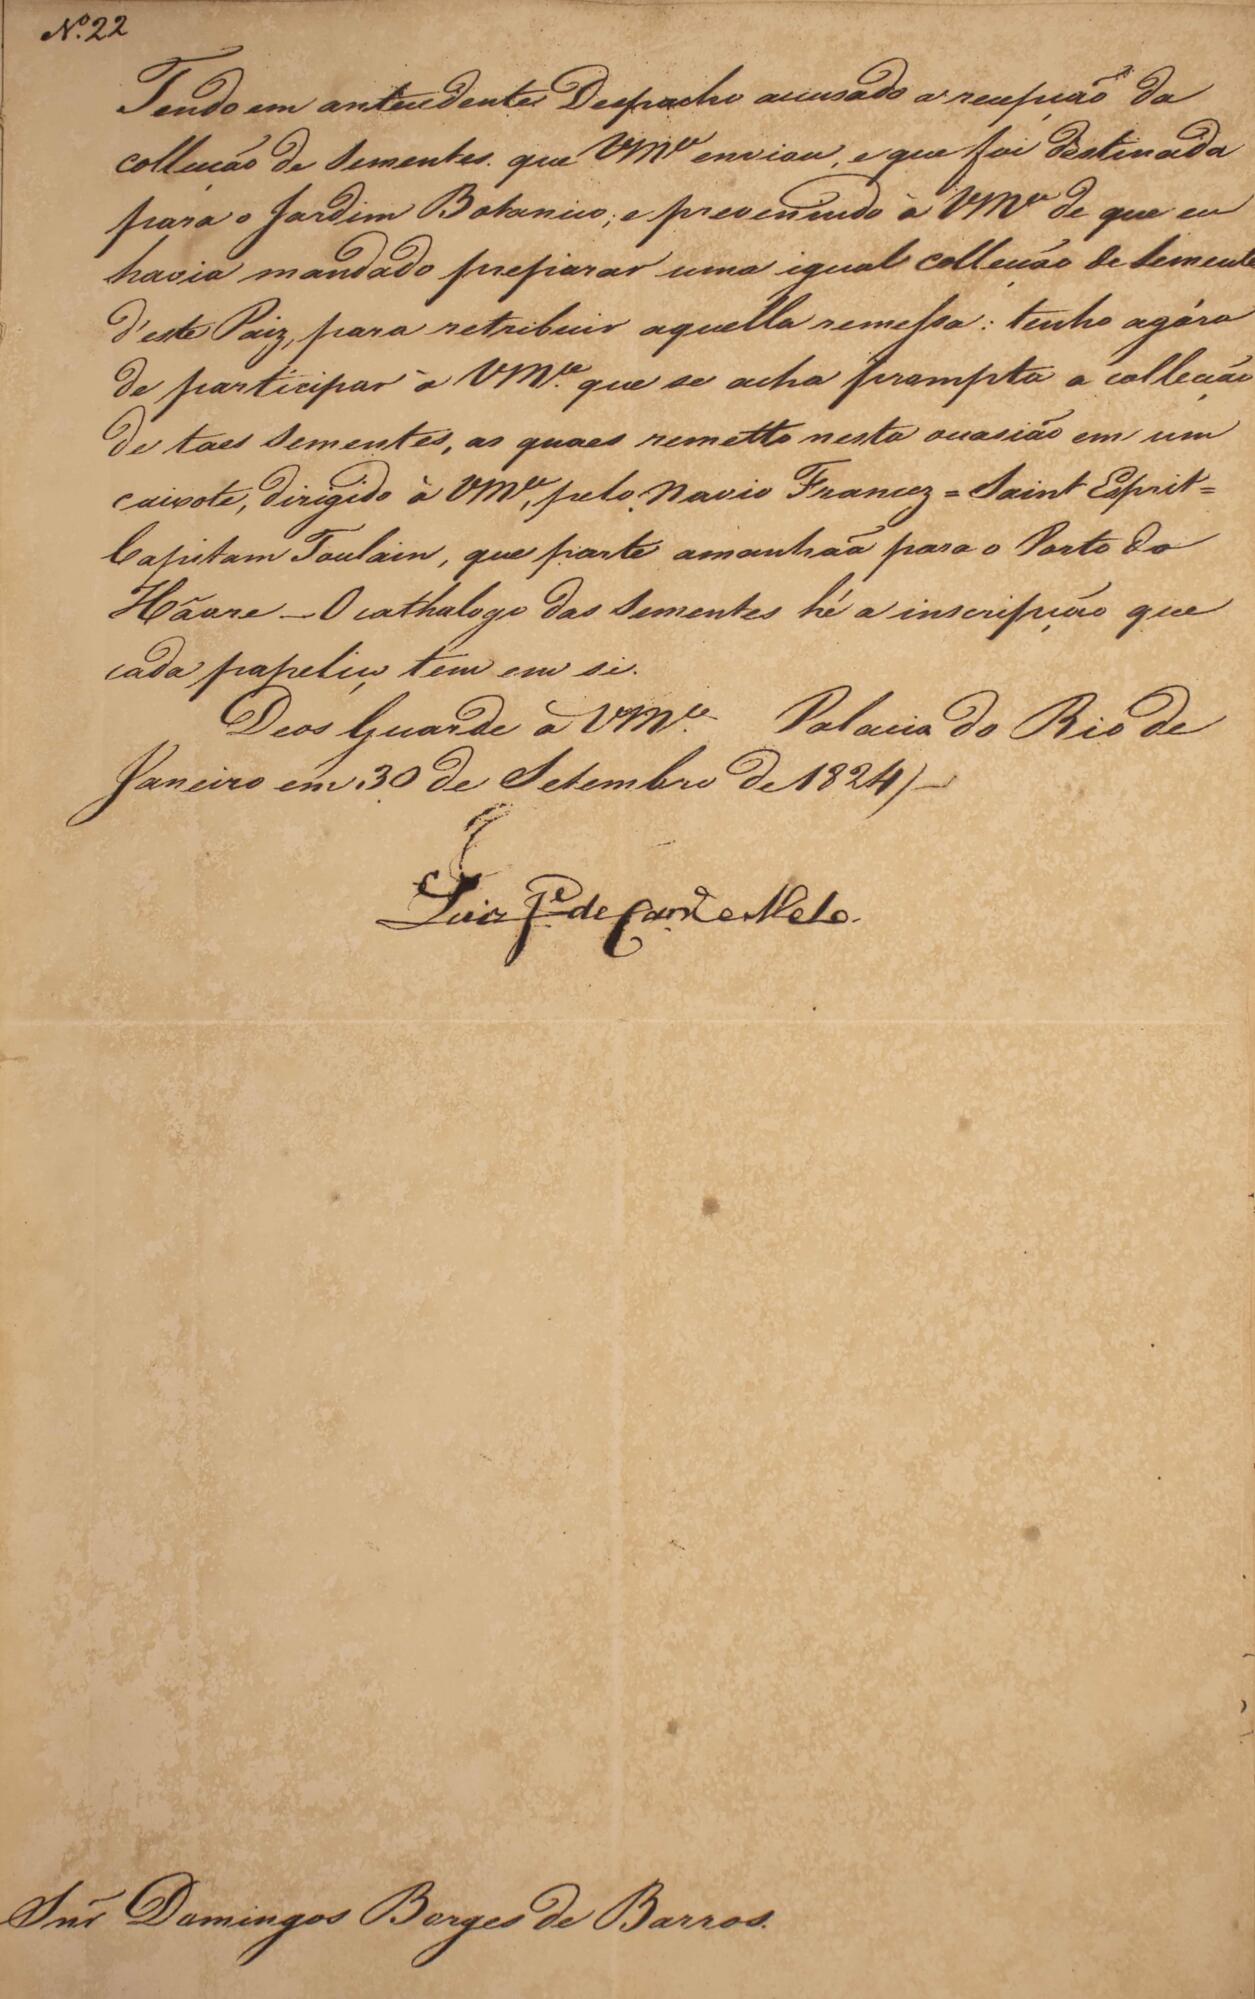 Nº 22
Tendo em antecedente Despacho accusado a recepção da
collecção de Sementes que VMce enviou, e que foi destinada
para o Jardim Botanico; e prevenindo à VMce de que eu
havia mandado preparar uma igual collecção de Semente
d'este Paiz, para retribuir aquella remessa: tenho agóra
de participar à VMce que se acha prompta a collecção
de taes Sementes, as quaes remetto nesta occasião em um
caixote, dirigido à VMce, pelo Navio Francez = Saint Esprit =
Capitam Toulain, que parte amanhãa para o Porto do
Hâvre — O cathalogo das Sementes hé a inscripção que
cada papeliço tem em si.
Deos Guarde à VMce. Palacio do Rio de
Janeiro em 30 de Setembro de 1824 /—
Luiz Je de Carvo e Melo.
Snr Domingos Borges de Barros.